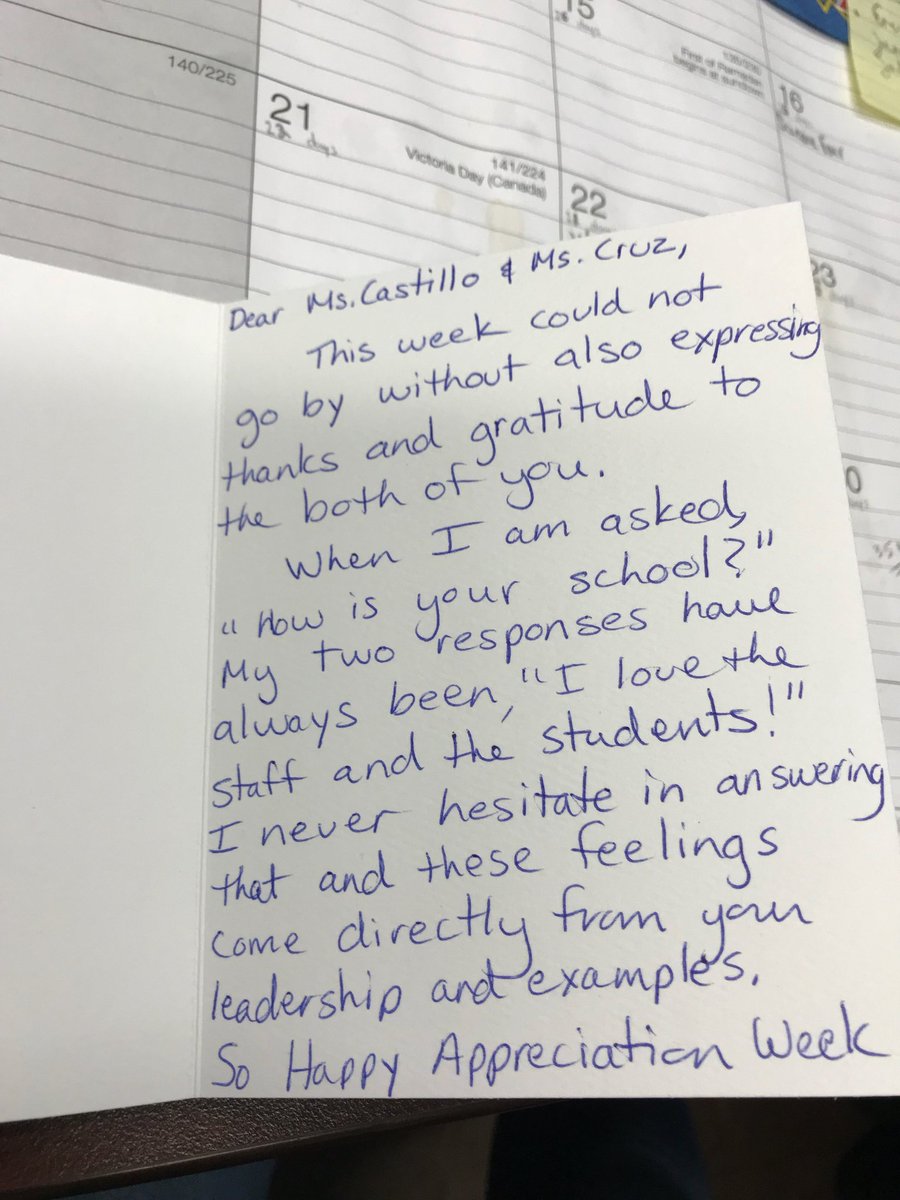 140/225
21
days
Victoria Day (Canada)
141/224
15
days
First of Ramadan
begins at sundown
16
22
23
Dear Ms. Castillo & Ms. Cruz,
This week could not
go by without also expressing
thanks and gratitude to
the both of you.
When I am asked,
"How is your school?"
My two responses have
always been, "I love the
staff and the students!"
I never hesitate in answering
that and these feelings
come directly from your
leadership and examples.
So Happy Appreciation Week